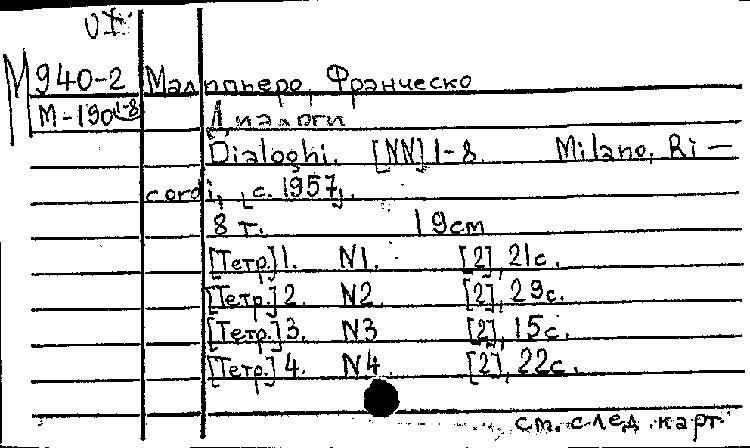 VI
М 940-2 Малипьеро, Франческо
М-190 1-8 Диалоги
Dialoghi. [NN] 1-8. Milano, Ri-
cordi, [c. 1957].
8 т. 19см
[Тетр.] 1. N1. [2], 21с.
[Тетр.] 2. N2. [2], 29с.
[Тетр.] 3. N3 [2], 15с.
[Тетр.] 4. N4 [2], 22с.
см. след. карт.